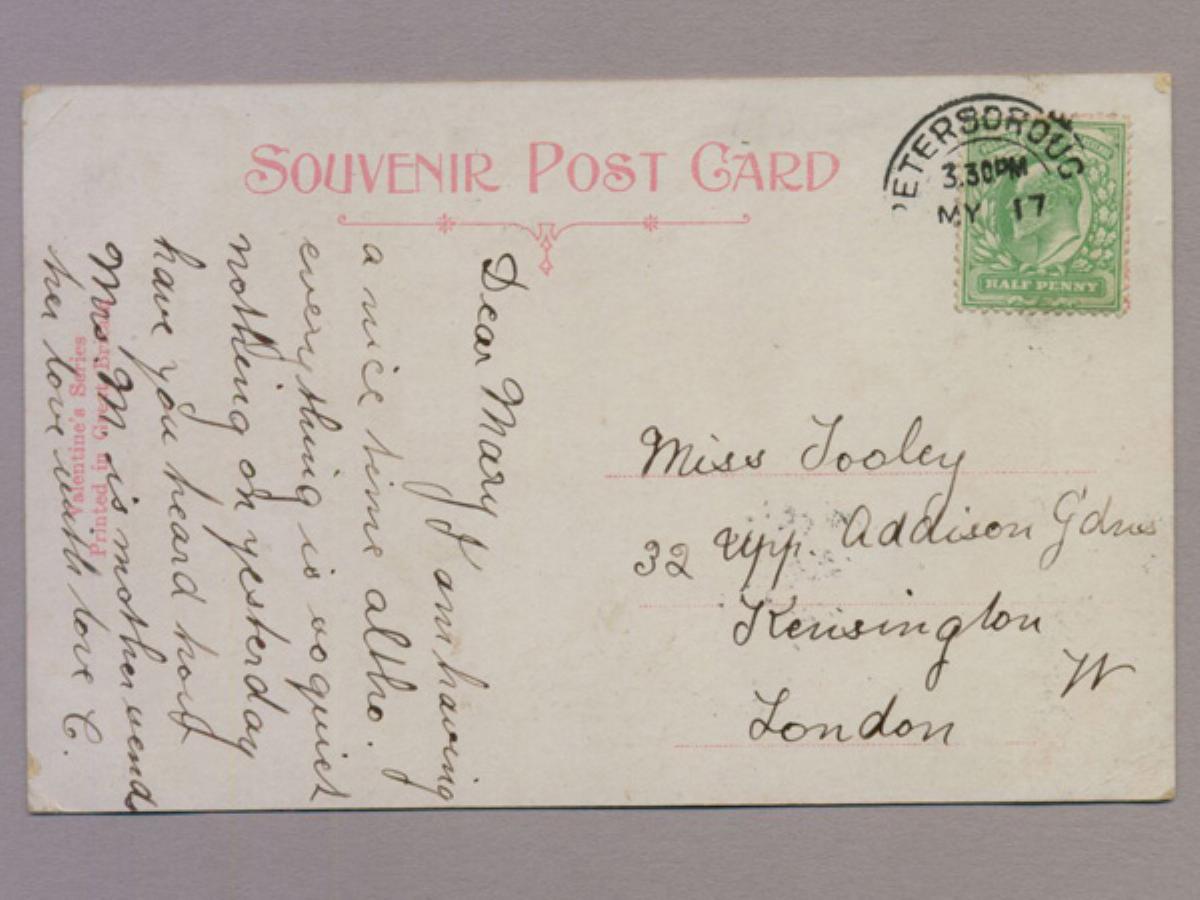 SOUVENIR POST CARD
PETERSBOROUG
3.30PM
MY 17
HALF PENNY
Dear Mary I am having
a nice time altho.
everything is so quiet
nothing on yesterday
have you heard how
Mrs. M. is mother sends
her love with love C.
Miss Tooley
32 Upp. Addison Gdns
Kensington
W
London
Valentine's Series
Printed in Great Britain